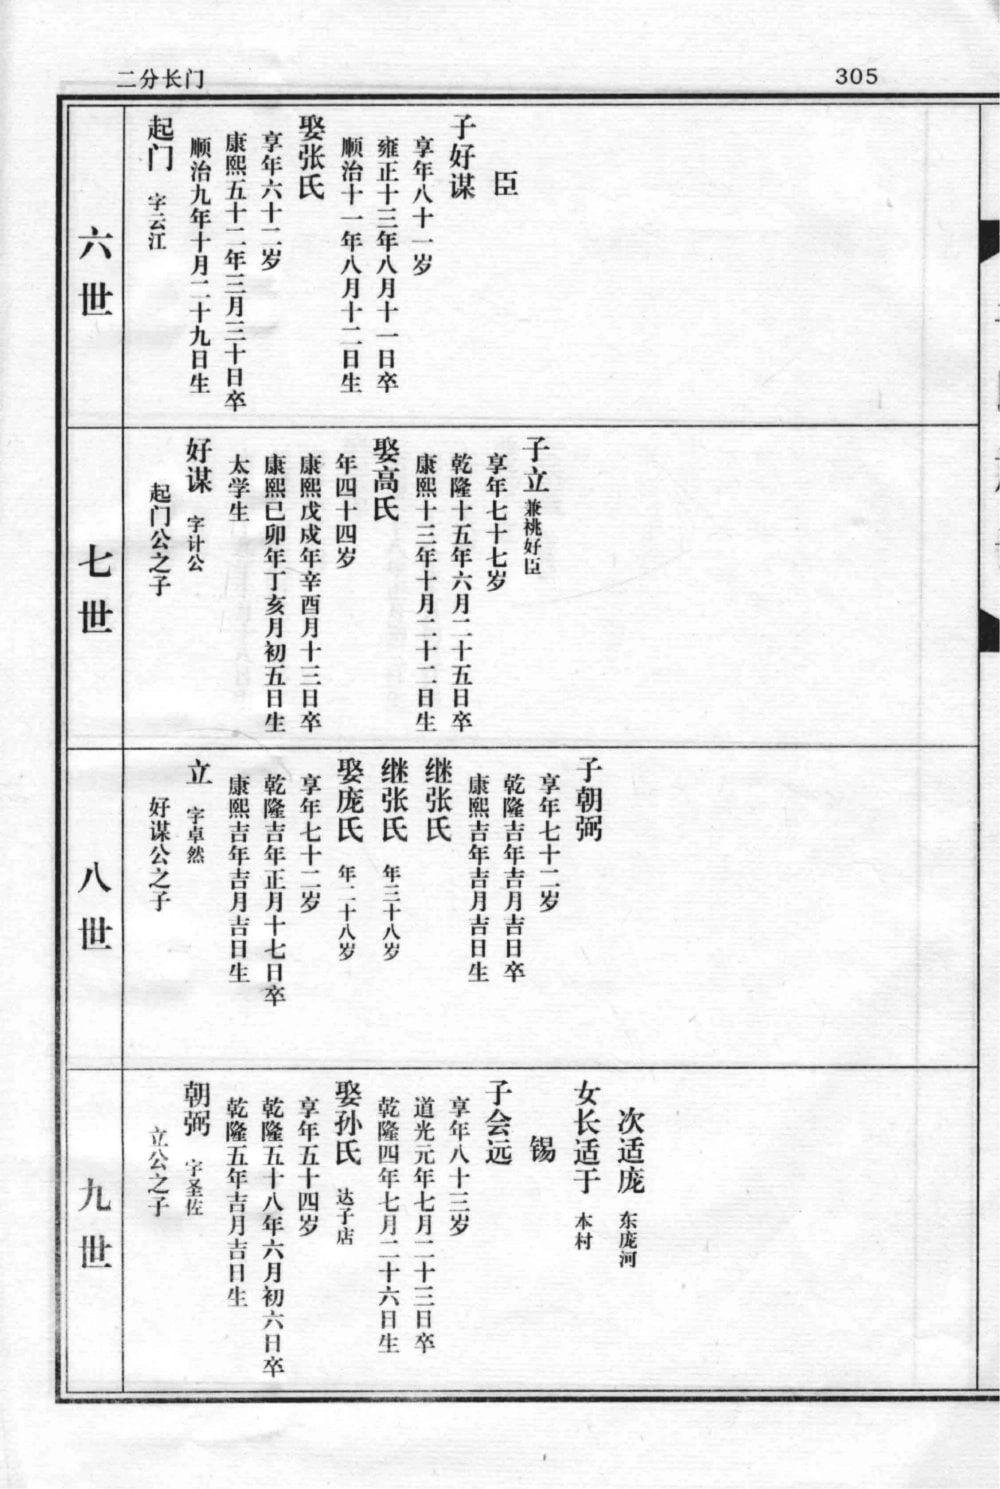 二分长门
305
六世
起门 字云江
顺治九年十月二十九日生
康熙五十二年三月三十日卒
享年六十二岁
娶张氏
顺治十一年八月十二日生
雍正十三年八月十一日卒
享年八十一岁
子好谋
臣
七世
起门公之子
好谋 字计公
太学生
康熙己卯年丁亥月初五日生
康熙戊戌年辛酉月十三日卒
年四十四岁
娶高氏
康熙十三年十月二十一日生
乾隆十五年六月二十五日卒
享年七十七岁
子立 兼祧好臣
八世
好谋公之子
立 字卓然
康熙吉年吉月吉日生
乾隆吉年正月十七日卒
享年七十二岁
娶庞氏 年二十八岁
继张氏 年三十八岁
继张氏
康熙吉年吉月吉日生
乾隆吉年吉月吉日卒
享年七十二岁
子朝弼
九世
立公之子
朝弼 字圣佐
乾隆五年吉月吉日生
乾隆五十八年六月初六日卒
享年五十四岁
娶孙氏 达子店
乾隆四年七月二十六日生
道光元年七月二十三日卒
享年八十三岁
子会远
锡
女长适于 本村
次适庞 东庞河